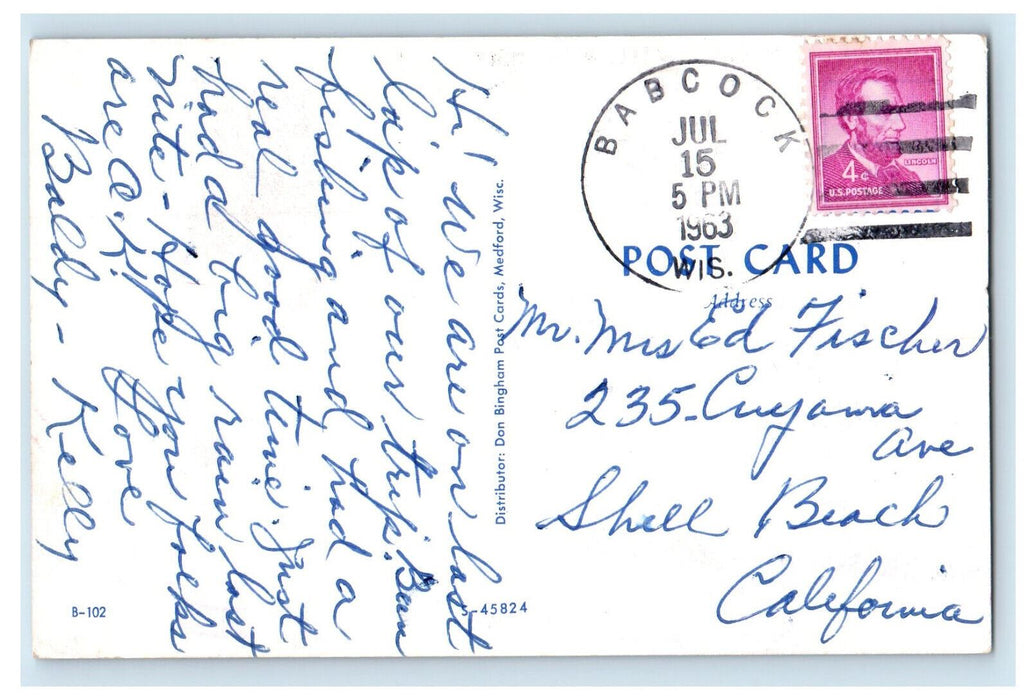 Hi! We are on last
lap of our trip. Been
fishing and had a
real good time. Just
had a big rain last
nite - Hope you folks
are O.K.
Love
Baldy - Kelly
Distributor: Don Bingham Post Cards, Medford, Wisc.
B-102
S-45824
BABCOCK
JUL
15
5 PM
1963
WIS.
4¢
LINCOLN
U.S. POSTAGE
POST CARD
Address
Mr. Mrs Ed Fischer
235 - Cuyama
Ave
Shell Beach
California